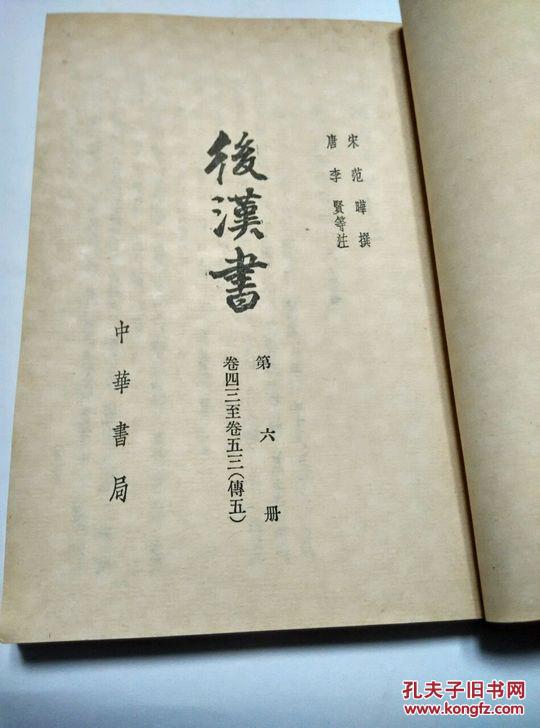 宋 范曄 撰
唐 李賢等注
後漢書
第六册
卷四三至卷五三(傳五)
中華書局
孔夫子旧书网
kongfz.com